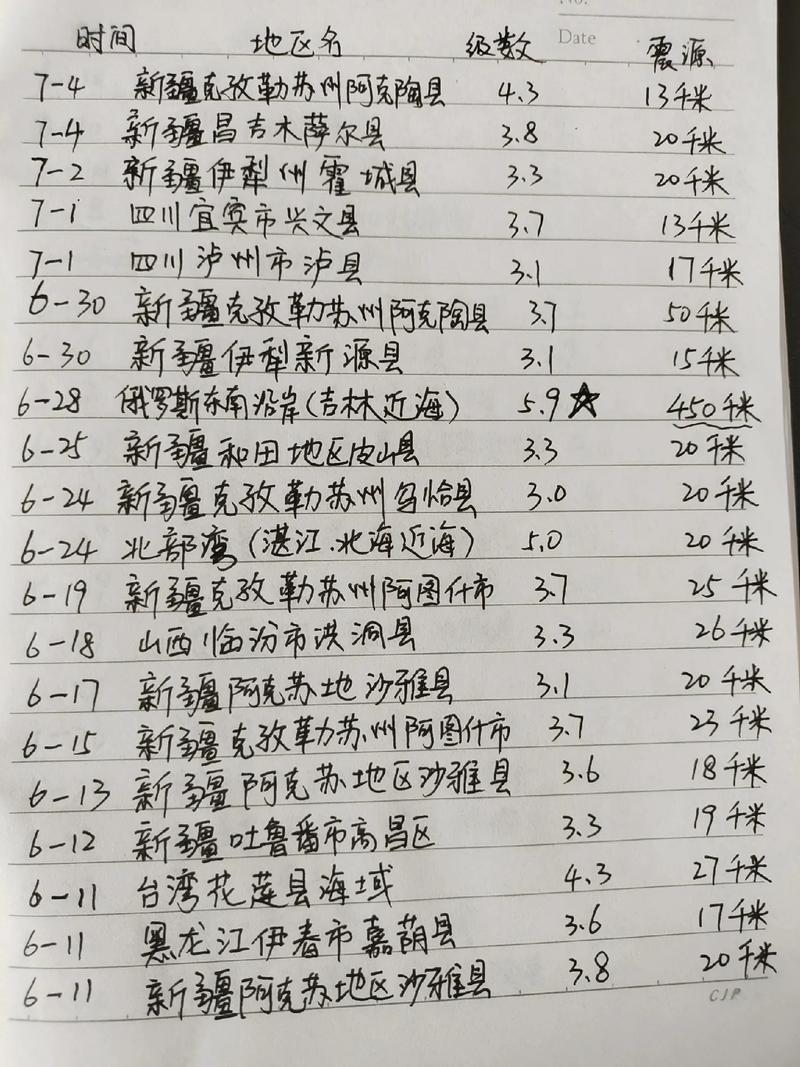 No.
Date
时间 地区名 级数 震源
7-4 新疆克孜勒苏州阿克陶县 4.3 13千米
7-4 新疆昌吉木萨尔县 3.8 20千米
7-2 新疆伊犁州霍城县 3.3 20千米
7-1 四川宜宾市兴文县 3.7 13千米
7-1 四川泸州市泸县 3.1 17千米
6-30 新疆克孜勒苏州阿克陶县 3.7 50千米
6-30 新疆伊犁新源县 3.1 15千米
6-28 俄罗斯东南沿岸(吉林近海) 5.9☆ 450千米
6-25 新疆和田地区皮山县 3.3 20千米
6-24 新疆克孜勒苏州乌恰县 3.0 20千米
6-24 北部湾(湛江.北海近海) 5.0 20千米
6-19 新疆克孜勒苏州阿图什市 3.7 25千米
6-18 山西临汾市洪洞县 3.3 26千米
6-17 新疆阿克苏地沙雅县 3.1 20千米
6-15 新疆克孜勒苏州阿图什市 3.7 23千米
6-13 新疆阿克苏地区沙雅县 3.6 18千米
6-12 新疆吐鲁番市高昌区 3.3 19千米
6-11 台湾花莲县海域 4.3 27千米
6-11 黑龙江伊春市嘉荫县 3.6 17千米
6-11 新疆阿克苏地区沙雅县 3.8 20千米
CJP